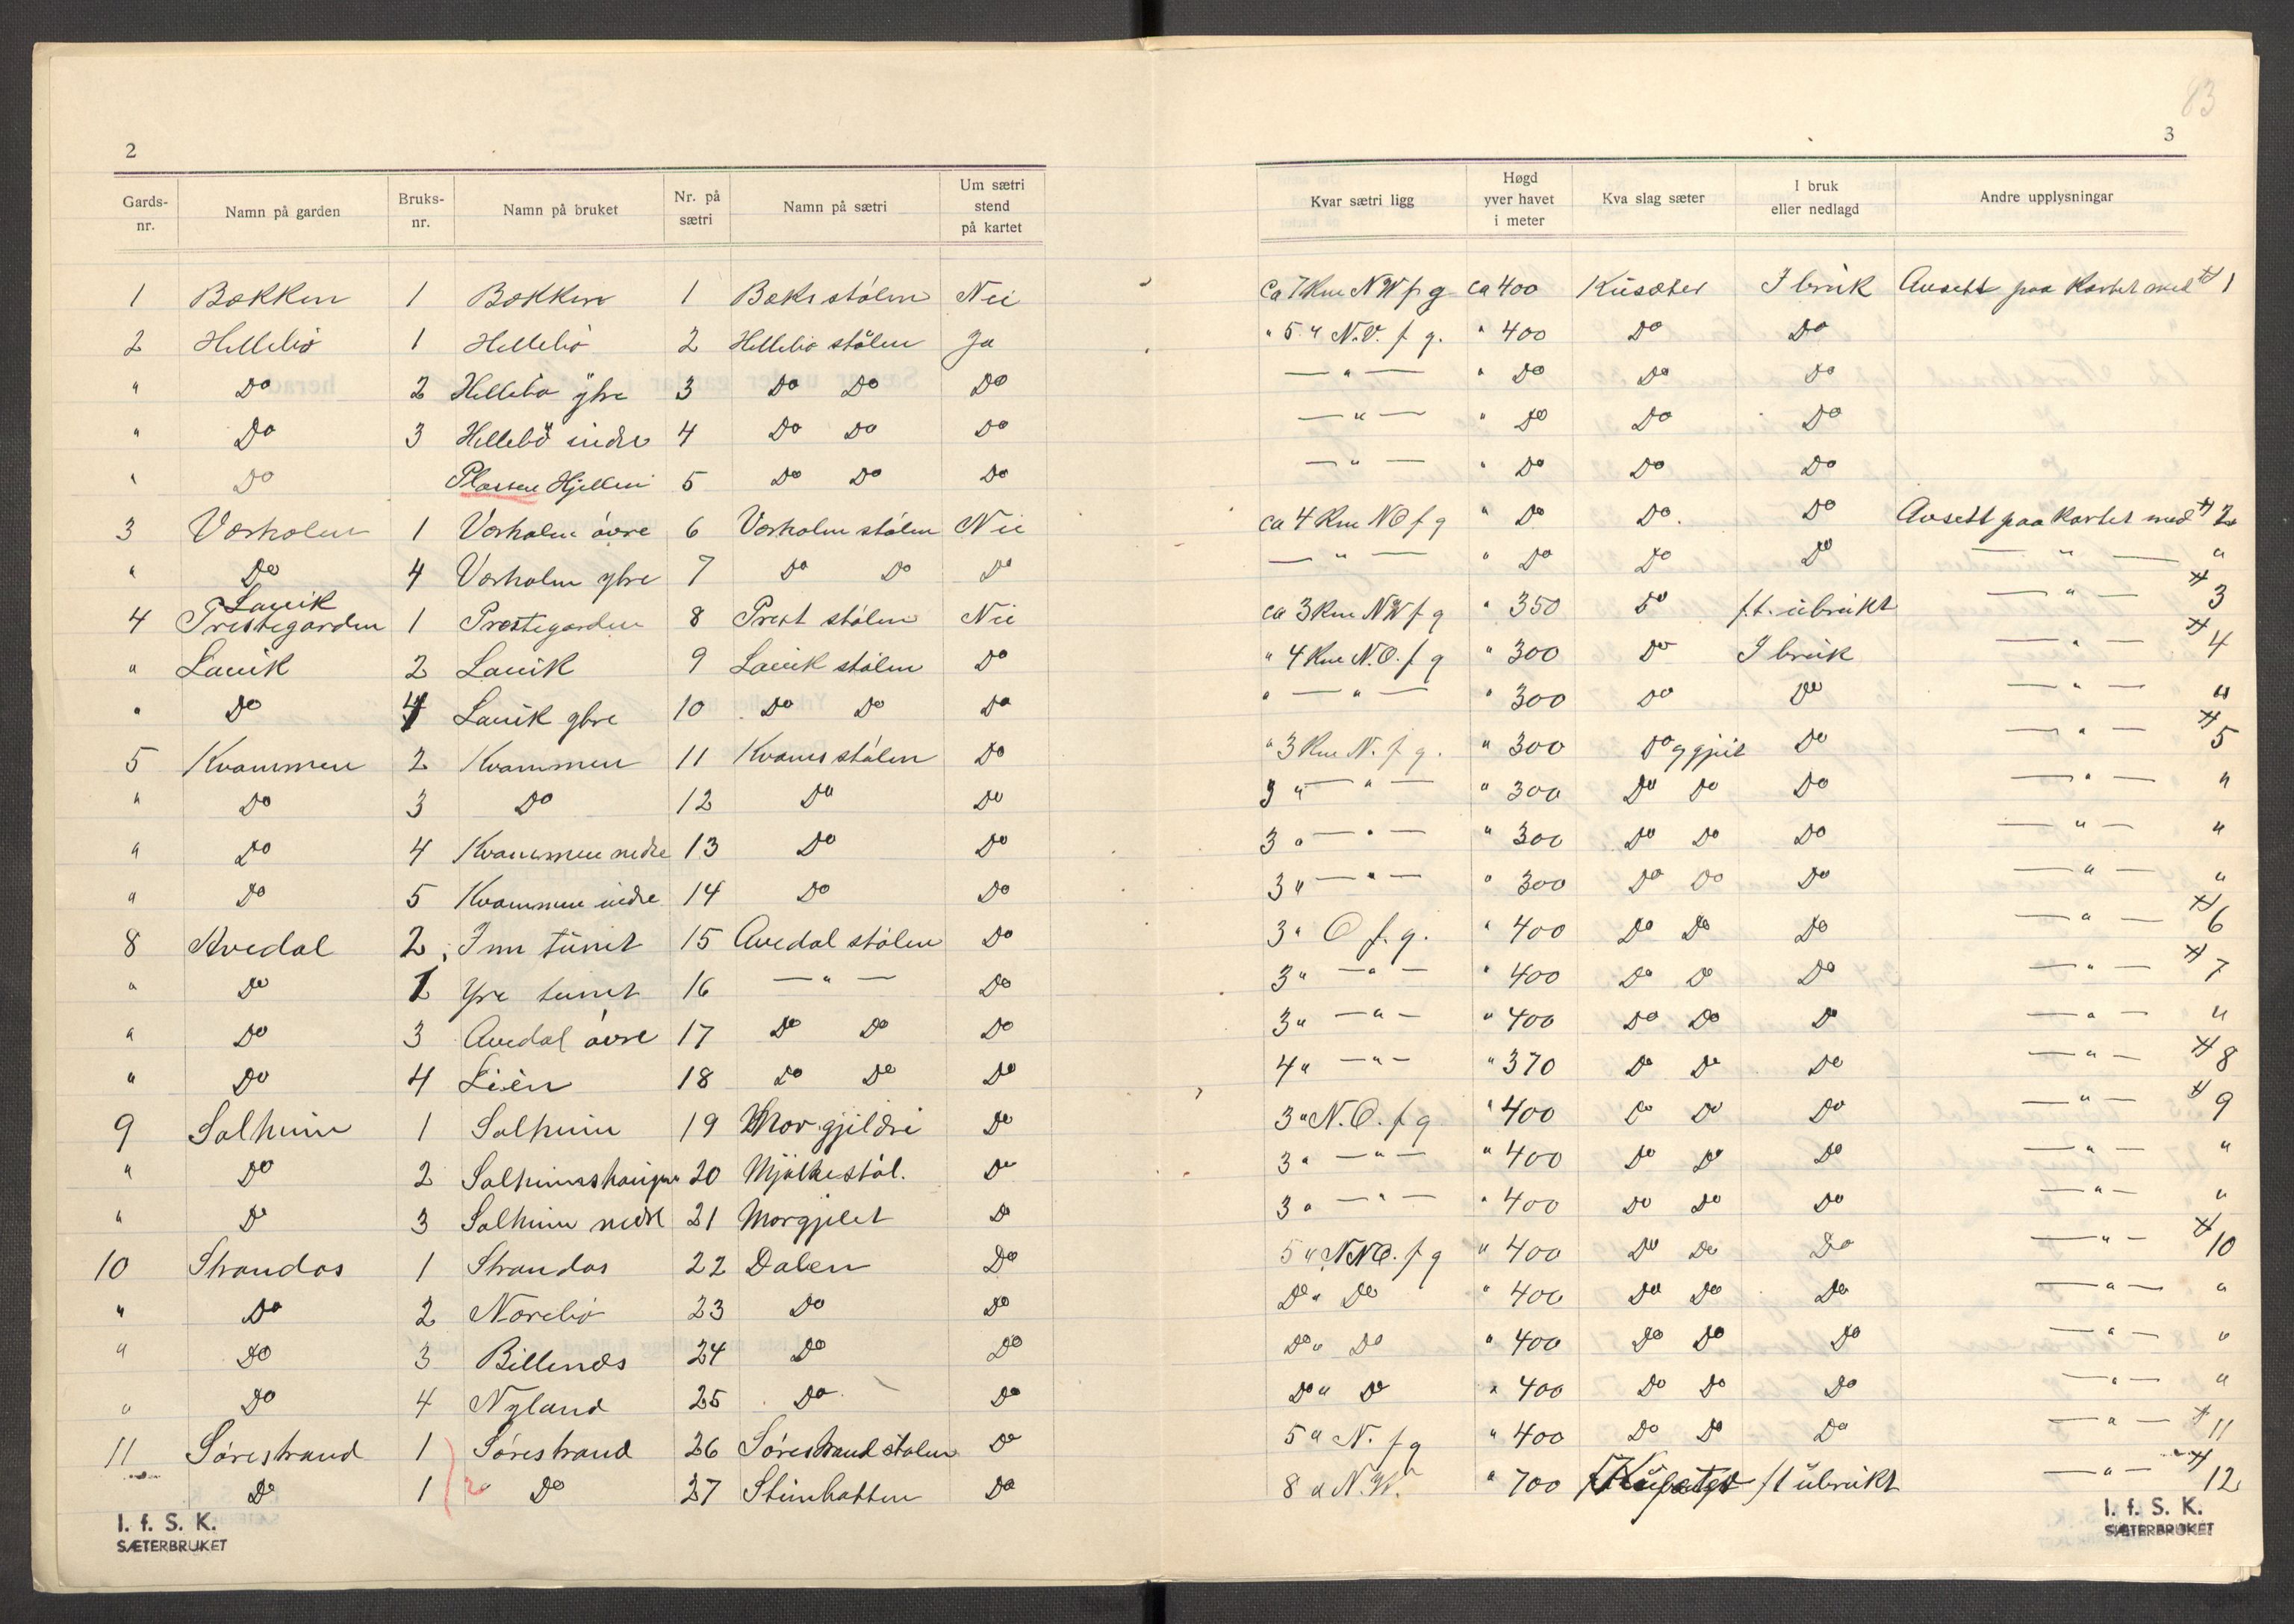 2
Gards-nr. Namn på garden Bruks-nr. Namn på bruket Nr. på sætri Namn på sætri Um sætri stend på kartet
1 Bøkken 1 Bøkken 1 Bøksstölen Nei
2 Hellebö 1 Hellebö 2 Hellebö stölen Ja
" Do 2 Hellebö ytre 3 Do Do Do
" Do 3 Hellebö indre 4 Do Do Do
" Do Plassen Hjellen 5 Do Do Do
3 Værholm 1 Værholm övre 6 Værholm stölen Nei
" Do 4 Værholm ytre 7 Do Do Do
4 Lavik Prestegarden 1 Prestegarden 8 Prest stölen Nei
" Lavik 2 Lavik 9 Lavik stölen Do
" Do 4 Lavik ytre 10 Do Do Do
5 Kvammen 2 Kvammen 11 Kvamsstölen Do
" Do 3 Do 12 Do Do
" Do 4 Kvammen nedre 13 Do Do
" Do 5 Kvammen indre 14 Do Do
8 Avedal 2 Inn tunet 15 Avedal stölen Do
" Do 1 Yre tunet 16 — " — Do
" Do 3 Avedal övre 17 Do Do Do
" Do 4 Lien 18 Do Do Do
9 Solheim 1 Solheim 19 Morgjildri Do
" Do 2 Solheimshaugen 20 Mjölkestöl. Do
" Do 3 Solheim nedre 21 Morgjilet Do
10 Strandos 1 Strandos 22 Dalen Do
" Do 2 Norebö 23 Do Do
" Do 3 Billenes 24 Do Do
" Do 4 Nyland 25 Do Do
11 Sörestrand 1 Sörestrand 26 Sörestrand stölen Do
Do 1 2 Do 27 Steinhatten Do
I. f. S. K.
SÆTERBRUKET
83
3
Kvar sætri ligg Høgd yver havet i meter Kva slag sæter I bruk eller nedlagd Andre upplysningar
Ca 7 Km NW f g ca 400 Kusæter I bruk Avsett paa Kartet med # 1
" 5 " N.O. f g. " 400 Do Do
— " — " Do Do Do
— " — " Do Do Do
— " — " Do Do Do
ca 4 Km NO f g " Do Do. Do Avsett paa Kartet med # 2
— " — " Do Do Do — " — "
ca 3 Km NW f g " 350 Do f.t. ubrukt — " — # 3
" 4 Km N.O. f g " 300 Do I bruk — " — # 4
" — " — " 300 Do Do — " — "
" 3 Km N. f g. " 300 Do g gjeit Do — " — # 5
3 " — " — " 300 Do Do Do — " — "
3 " — " — " 300 Do Do Do — " — "
3 " — " — " 300 Do Do Do — " — "
3 " O f. g. " 400 Do Do Do — " — # 6
3 " — " — " 400 Do Do Do — " — # 7
3 " — " — " 400 Do Do Do — " — "
4 " — " — " 370 Do Do Do — " — # 8
3 " N.O. f g " 400 Do Do Do — " — # 9
3 " — " — " 400 Do Do Do — " — "
3 " — " — " 400 Do Do Do — " — "
5 " NNO. f g " 400 Do Do Do — " — # 10
Do " Do " 400 Do Do Do — " — "
Do " Do " 400 Do Do Do — " — "
Do " Do " 400 Do Do Do — " — "
5 " N. f g " 400 Do Do Do — " — # 11
8 " N.W. " 700 Kusæter f t ubrukt — " — # 12
I. f. S. K.
SÆTERBRUKET